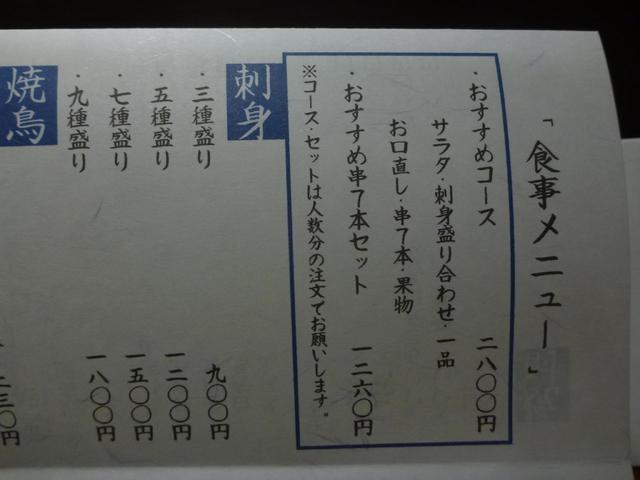 「食事メニュー」
・おすすめコース 二八〇〇円
サラダ・刺身盛り合わせ・一品
お口直し・串7本・果物
・おすすめ串7本セット 一二六〇円
※コース・セットは人数分の注文でお願いします。
刺身
・三種盛り 九〇〇円
・五種盛り 一二〇〇円
・七種盛り 一五〇〇円
・九種盛り 一八〇〇円
焼鳥
二三〇円